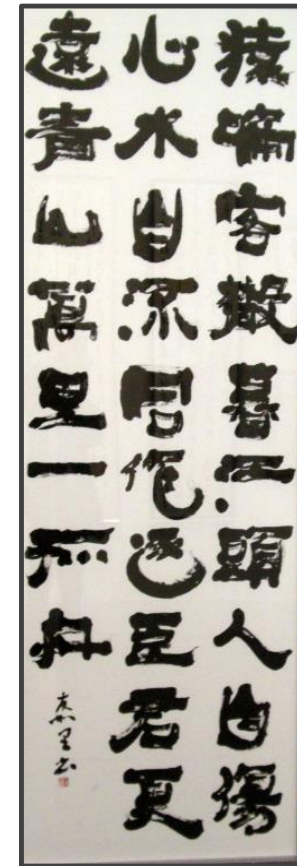 猿啼客散暮江頭人自傷
心水自流同作逐臣君更
遠青山萬里一孤舟